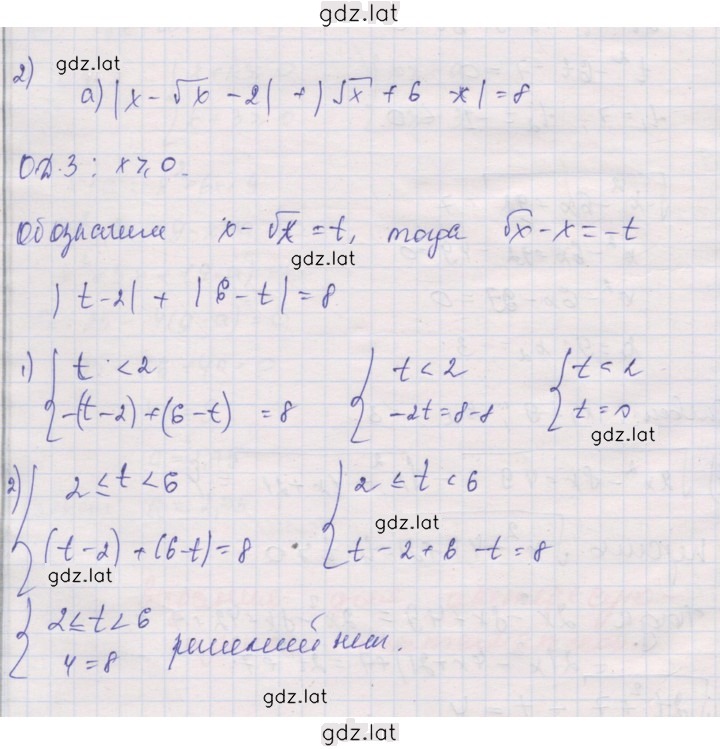 gdz.lat
2) gdz.lat
а) |x - √x - 2| + |√x + 6 - x| = 8
О.Д.З: x ≥ 0.
Обозначим x - √x = t, тогда √x - x = -t
gdz.lat
|t - 2| + |6 - t| = 8
1) { t < 2 { t < 2 { t < 2
-(t - 2) + (6 - t) = 8 -2t = 8 - 8 t = 0
gdz.lat
2) { 2 ≤ t < 6 { 2 ≤ t < 6
gdz.lat
(t - 2) + (6 - t) = 8 t - 2 + 6 - t = 8
gdz.lat
{ 2 ≤ t < 6
4 = 8 решений нет.
gdz.lat
gdz.lat